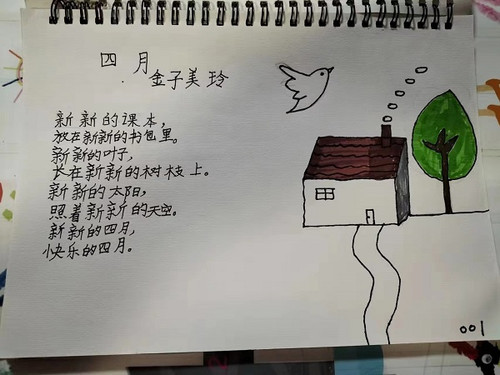 四月
金子美玲
新新的课本,
放在新新的书包里。
新新的叶子,
长在新新的树枝上。
新新的太阳,
照着新新的天空。
新新的四月,
快乐的四月。
001